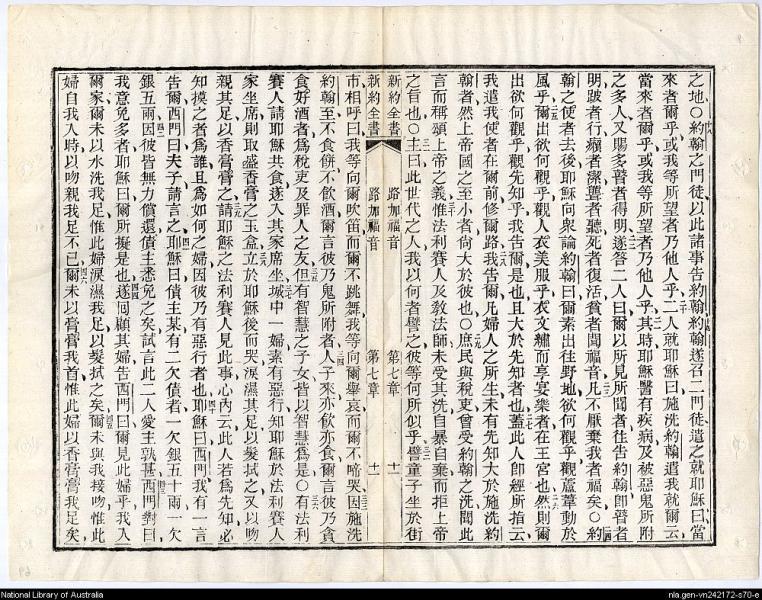 之地○約翰之門徒以此諸事告約翰約翰遂召二門徒遣之就耶穌曰當
來者爾乎或我等所望者乃他人乎二人就耶穌曰施洗約翰遣我就爾云
當來者爾乎或我等所望者乃他人乎其時耶穌醫有疾病及被惡鬼所附
之多人又賜多瞽者得明遂答二人曰爾以所見所聞者往告約翰卽瞽者
明跛者行癩者潔聾者聽死者復活貧者聞福音凡不厭棄我者福矣○約
翰之使者去後耶穌向衆論約翰曰爾素出往野地欲何觀乎觀蘆葦動於
風乎爾出欲何觀乎觀人衣美服乎衣文繡而享宴樂者在王宮也然則爾
出欲何觀乎觀先知乎我告爾是也且大於先知者也蓋此人卽經所指云
我遣我使者在爾前修爾路我告爾凡婦人之所生未有先知大於施洗約
翰者然上帝國之至小者尙大於彼也○庶民與稅吏曾受約翰之洗聞此
言而稱頌上帝之義惟法利賽人及敎法師未受其洗自暴自棄而拒上帝
之旨也○主曰此世代之人我以何者譬之彼等何所似乎譬童子坐於街
新約全書 路加福音 第七章 十一
新約全書 路加福音 第七章 十一
市相呼曰我等向爾吹笛而爾不跳舞我等向爾舉哀而爾不啼哭因施洗
約翰至不食餅不飮酒爾言彼乃鬼所附者人子來亦飮亦食爾言彼乃貪
食好酒者爲稅吏及罪人之友但有智慧之子女皆以智慧爲是○有法利
賽人請耶穌共食遂入其家席坐城中一婦素有惡行知耶穌於法利賽人
家坐席則取盛香膏之玉盒立於耶穌後而哭淚濕其足以髮拭之又以吻
親其足以香膏膏之請耶穌之法利賽人見此事心內云此人若爲先知必
知摸之者爲誰且爲如何之婦因彼乃有惡行者也耶穌曰西門我有一言
告爾西門曰夫子請言之耶穌曰債主某有二欠債者一欠銀五十兩一欠
銀五兩因彼皆無力償還債主悉免之矣試言此二人愛主孰甚西門對曰
我意免多者耶穌曰爾所擬是也遂回顧其婦告西門曰爾見此婦乎我入
爾家爾未以水洗我足惟此婦淚濕我足以髮拭之矣爾未與我接吻惟此
婦自我入時以吻親我足不已爾未以膏膏我首惟此婦以香膏膏我足矣
National Library of Australia
nla.gen-vn242172-s70-e